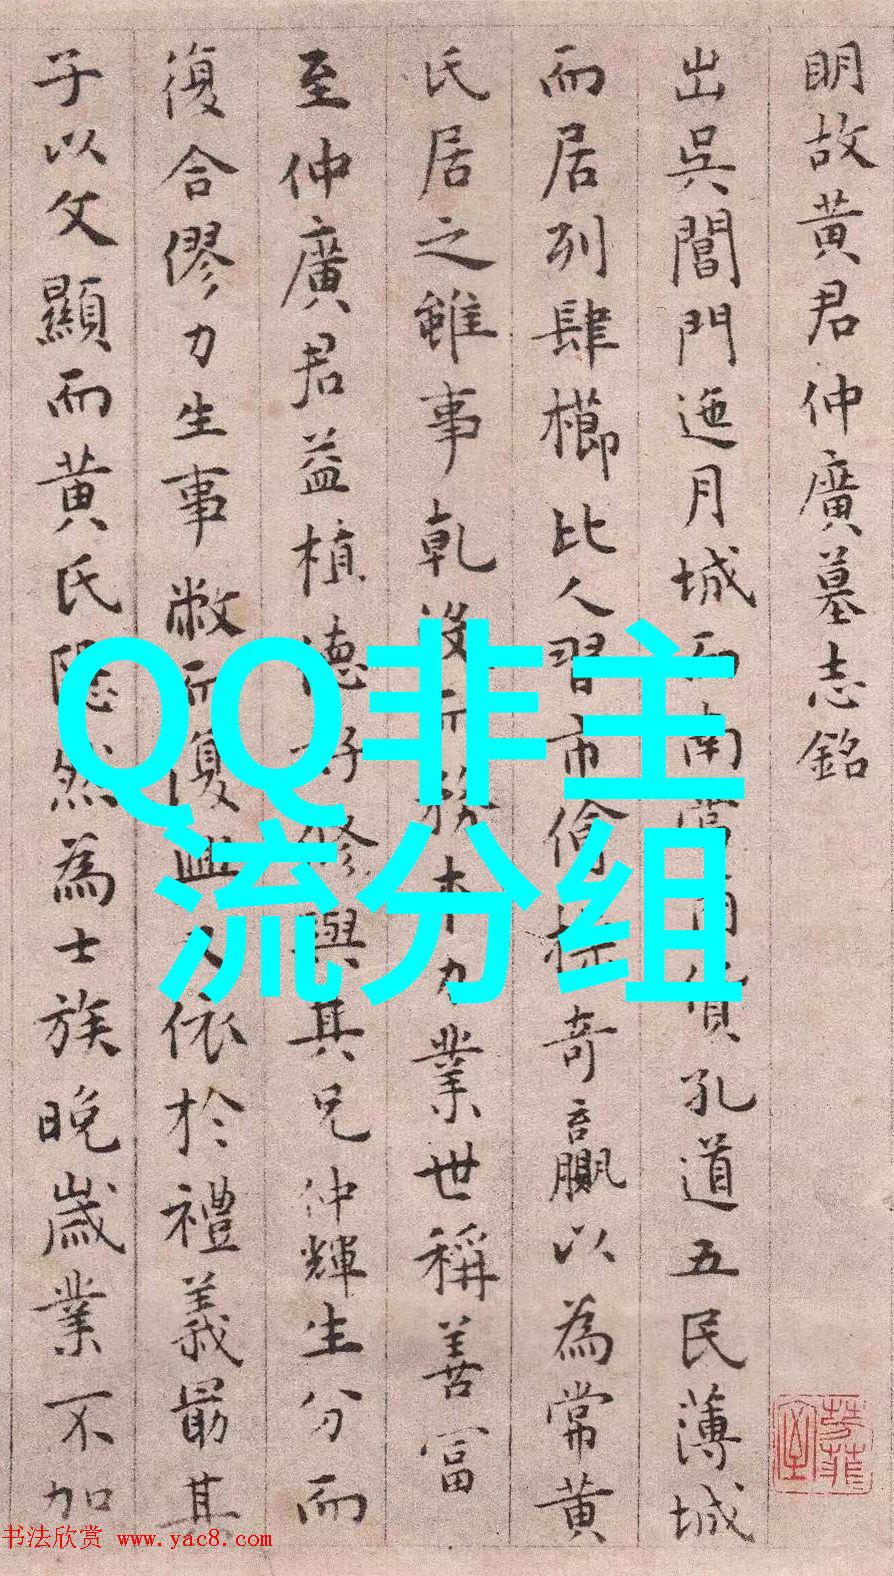 明故黄君仲廣墓志銘
出吳閶門迤月城而南當商貨孔道五民薄城
而居列肆櫛比人習市儈操奇贏以為常黄
氏居之雖事乾没而務本力業世稱善富
至仲廣君益植德好修與其兄仲輝生分而
復合僇力生事敝而復興又依於禮義最其
子以文顯而黄氏隱然為士族晚歲業不加
QQ非主
流分组
书法欣赏 www.yac8.com